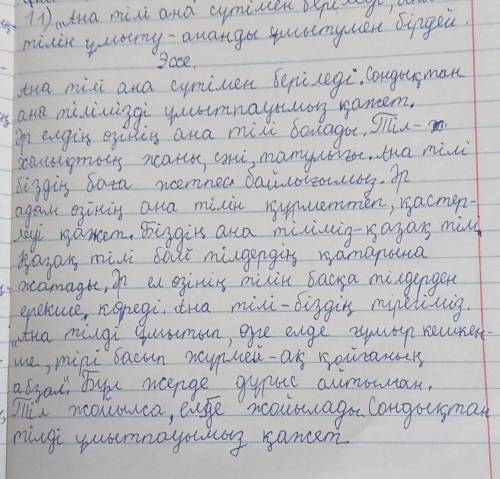 11) „Ана тілі ана сүтімен беріледі, ана
тілін ұмыту - анаңды ұмытумен бірдей.
Эссе.
Ана тілі ана сүтімен беріледі. Сондықтан
ана тілімізді ұмытпауымыз қажет.
Әр елдің өзінің ана тілі болады. Тіл -
халықтың жаны, сәні, татулығы. Ана тілі
біздің баға жетпес байлығымыз. Әр
адам өзінің ана тілін құрметтеп, қастер-
леуі қажет. Біздің ана тіліміз - қазақ тілі.
Қазақ тілі бай тілдердің қатарына
жатады. Әр ел өзінің тілін басқа тілдерден
ерекше көреді. Ана тілі - біздің тірегіміз.
„Ана тілді ұмытып, өзге елде ғұмыр кешкен-
ше, тірі басып жүрмей-ақ қойғаның
абзал". Бұл жерде дұрыс айтылған.
Тіл жойылса, елде жойылады. Сондықтан
тілді ұмытпауымыз қажет.